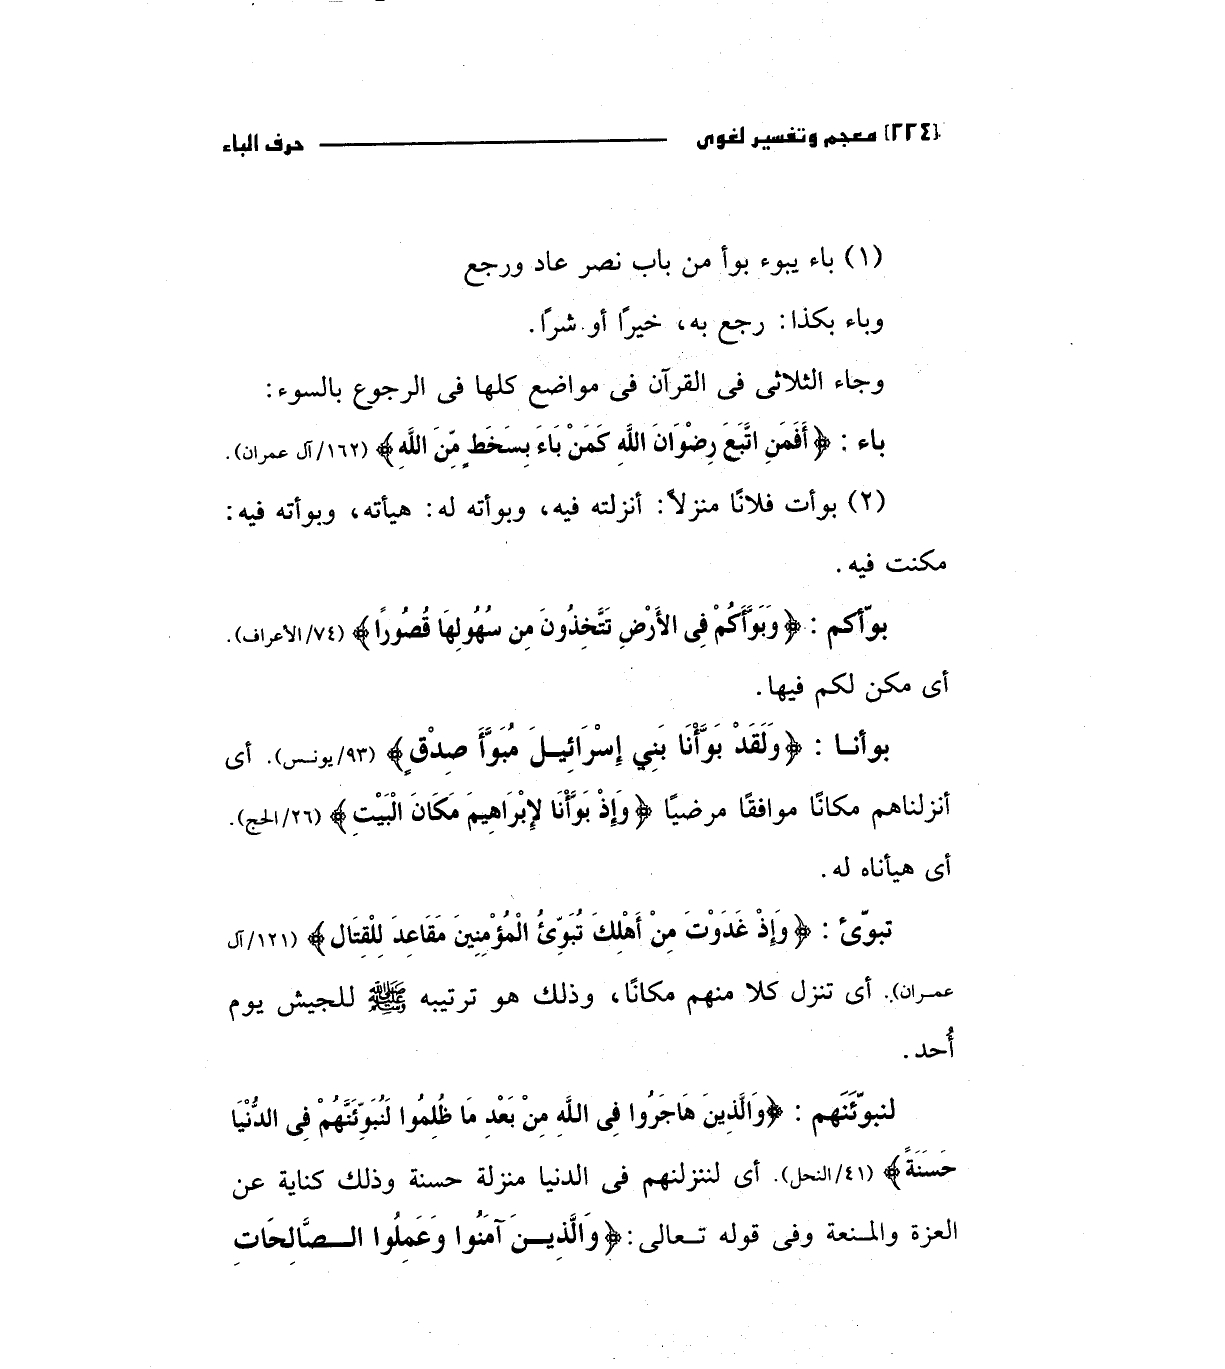 {٢٢٤} معجم وتفسير لغوى حرف الباء
(١) باء يبوء بوأ من باب نصر عاد ورجع
وباء بكذا: رجع به، خيرًا أو شرًا.
وجاء الثلاثى فى القرآن فى مواضع كلها فى الرجوع بالسوء:
باء : ﴿أَفَمَنِ اتَّبَعَ رِضْوَانَ اللَّهِ كَمَنْ بَاءَ بِسَخَطٍ مِّنَ اللَّهِ﴾ (١٦٢/آل عمران).
(٢) بوأت فلانًا منزلاً: أنزلته فيه، وبوأته له: هيأته، وبوأته فيه:
مكنت فيه.
بوّأكم : ﴿وَبَوَّأَكُمْ فِى الأَرْضِ تَتَّخِذُونَ مِن سُهُولِهَا قُصُورًا﴾ (٧٤/الأعراف).
أى مكن لكم فيها.
بوأنـا : ﴿وَلَقَدْ بَوَّأْنَا بَنِي إِسْرَائِيـلَ مُبَوَّأَ صِدْقٍ﴾ (٩٣/يونـس). أى
أنزلناهم مكانًا موافقًا مرضيًا ﴿وَإِذْ بَوَّأْنَا لإِبْرَاهِيمَ مَكَانَ الْبَيْتِ﴾ (٢٦/الحج).
أى هيأناه له.
تبوّئ : ﴿وَإِذْ غَدَوْتَ مِنْ أَهْلِكَ تُبَوِّئُ الْمُؤْمِنِينَ مَقَاعِدَ لِلْقِتَالِ﴾ (١٢١/آل
عمـران). أى تنزل كلا منهم مكانًا، وذلك هو ترتيبه ﷺ للجيش يوم
أُحد.
لنبوّئَنَهم : ﴿وَالَّذِينَ هَاجَرُوا فِى اللَّهِ مِنْ بَعْدِ مَا ظُلِمُوا لَنُبَوِّئَنَّهُمْ فِى الدُّنْيَا
حَسَنَةً﴾ (٤١/النحل). أى لننزلنهم فى الدنيا منزلة حسنة وذلك كناية عن
العزة والمـنعة وفى قوله تـعالى:﴿وَالَّذِيـنَ آمَنُوا وَعَمِلُوا الـصَّالِحَاتِ